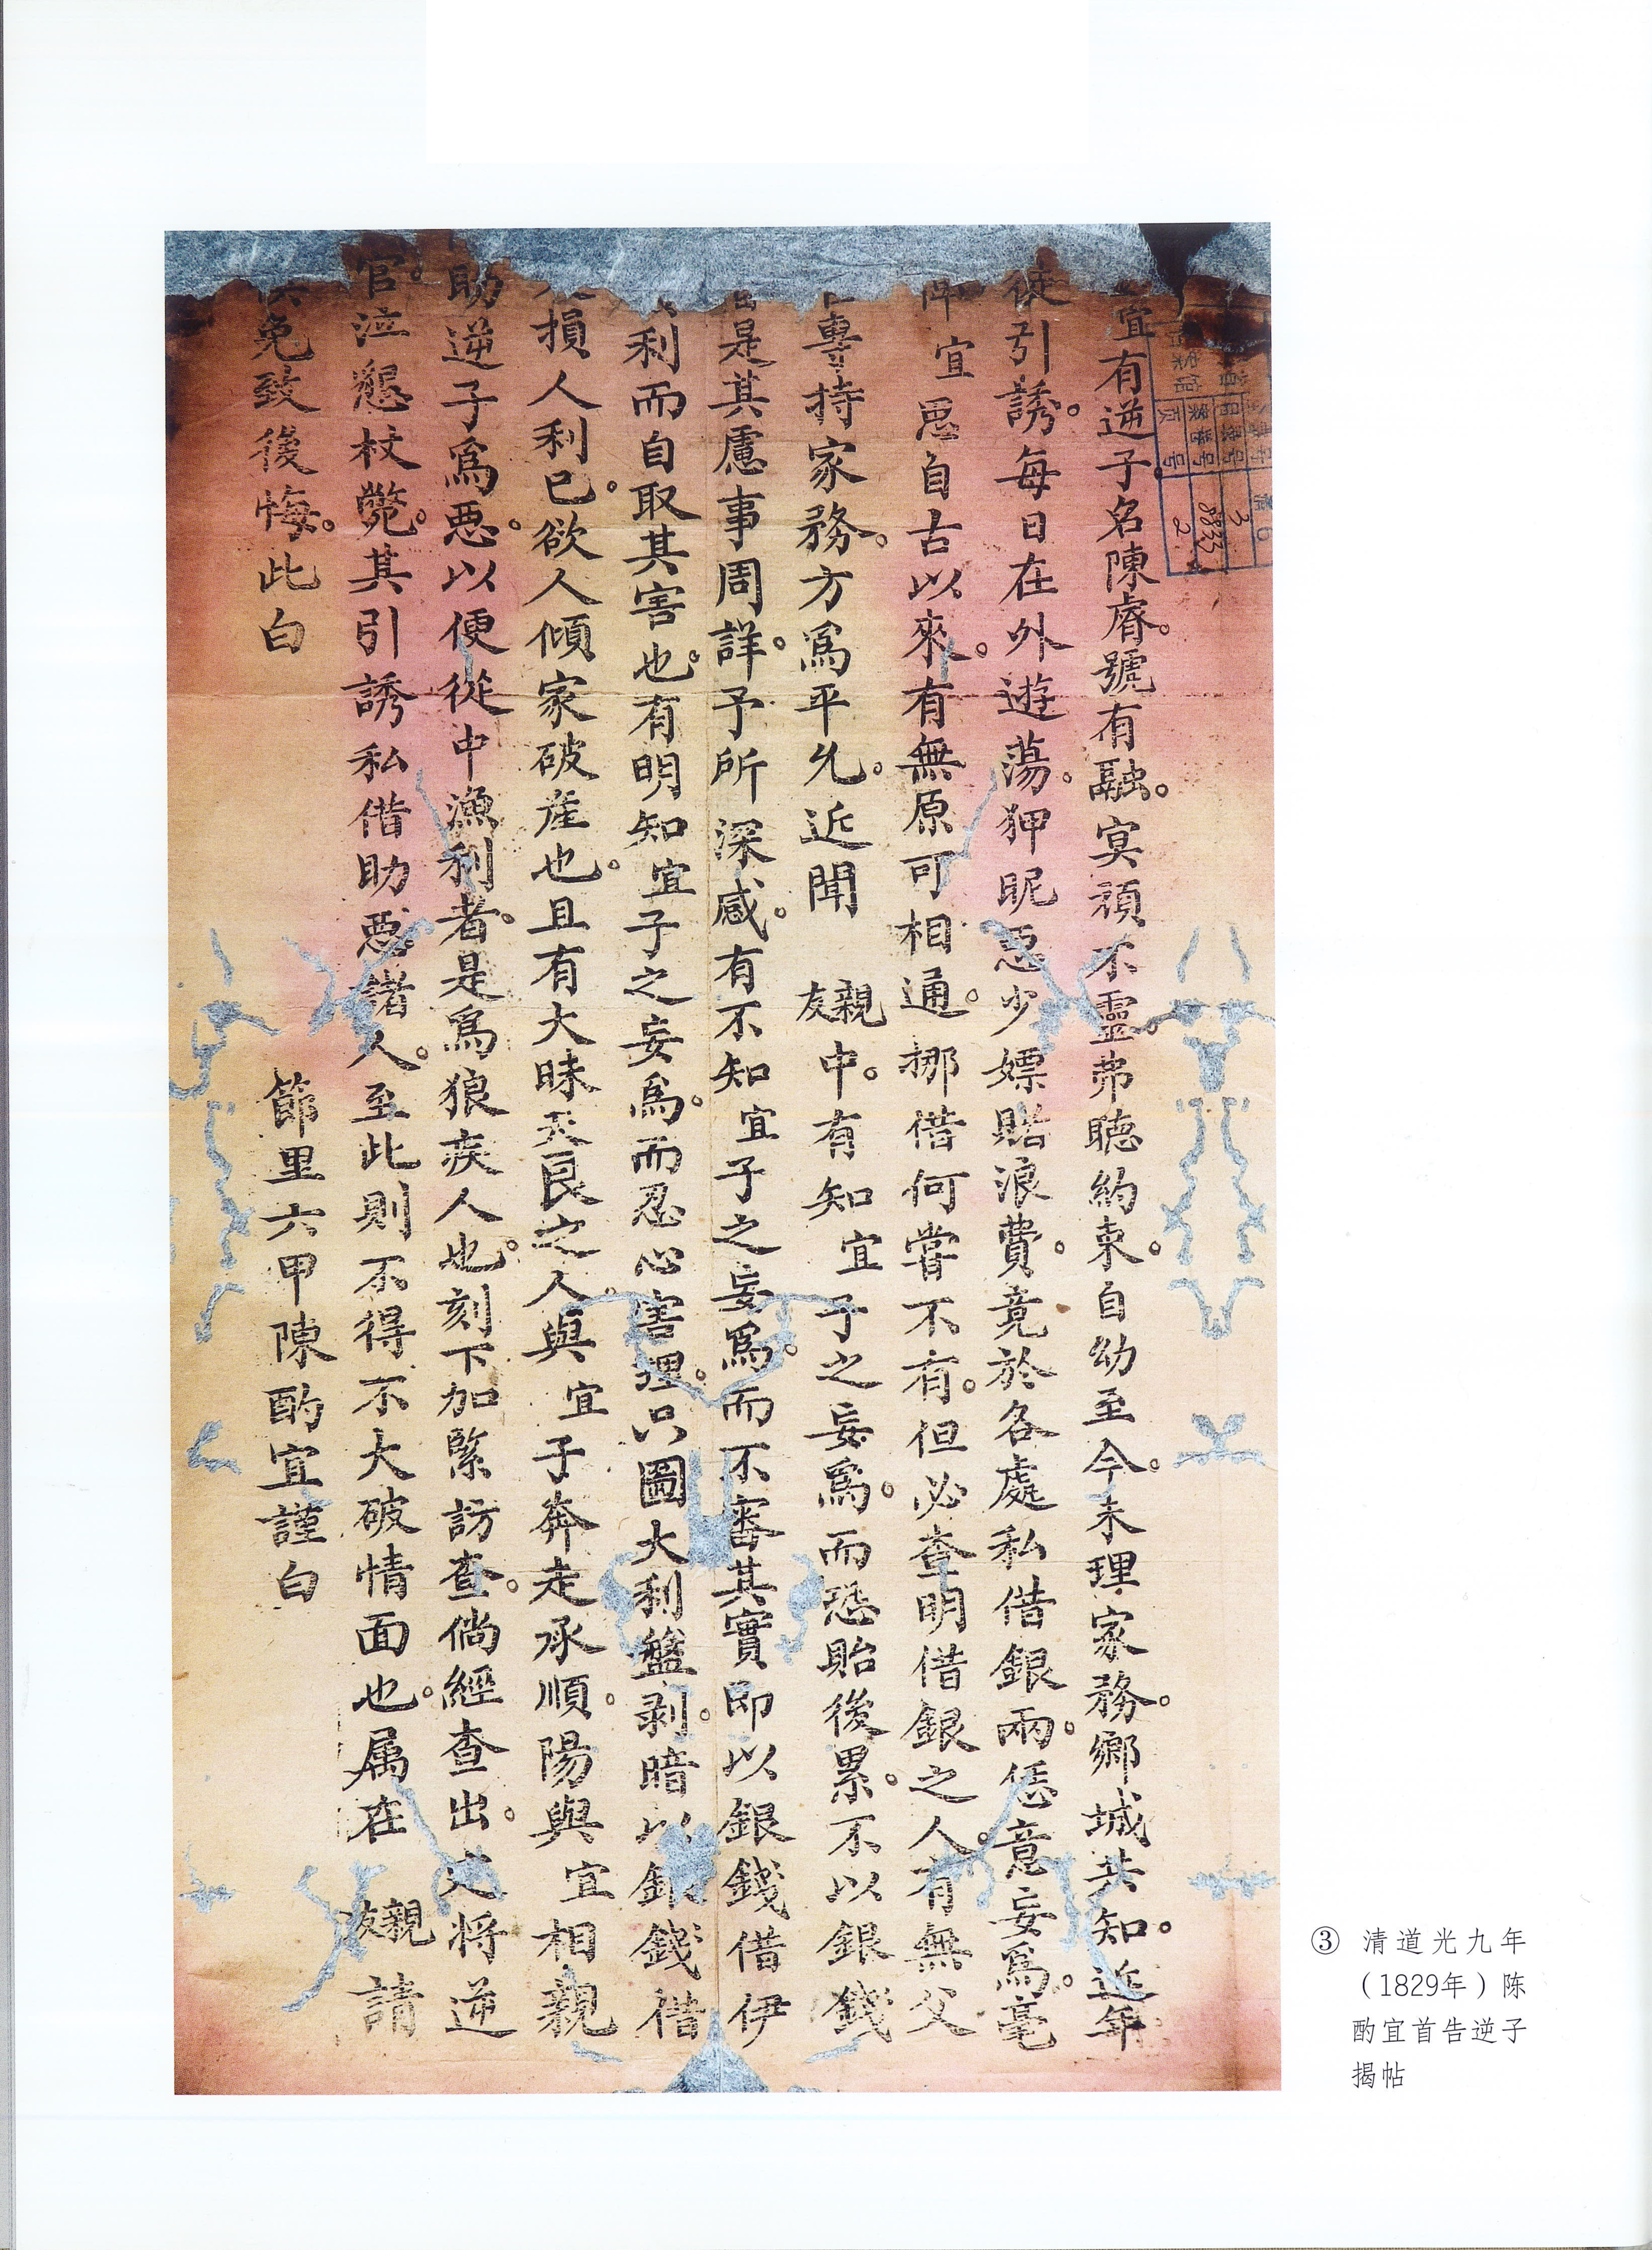 宜有逆子名陳睿。號有融。冥頑不靈。弗聽約束。自幼至今。未理家務。鄉城共知。近年
徒引誘。每日在外遊蕩。狎昵惡少。嫖賭浪費。竟於各處私借銀兩。恁意妄爲。毫
宜思自古以來。有無原可相通。挪借何嘗不有。但必查明借銀之人。有無父
專持家務。方爲平允。近聞 親友中。有知宜子之妄爲。而恐貽後累。不以銀錢
是其慮事周詳。予所深感。有不知宜子之妄爲。而不審其實即以銀錢借伊
利而自取其害也。有明知宜子之妄爲。而忍心害理。只圖大利盤剥。暗以銀錢借
損人利已。欲人傾家破產也。且有大昧天良之人。與宜子奔走承順。陽與宜相親
助逆子爲惡。以便從中漁利者。是爲狼疾人也。刻下加緊訪查。倘經查出。定將逆
官。泣懇杖斃。其引誘私借助惡諸人。至此則不得不大破情面也。属在 親友 請
免致後悔。此白
節里六甲陳酌宜謹白
3
8833
2
③ 清道光九年
（1829年）陈
酌宜首告逆子
揭帖